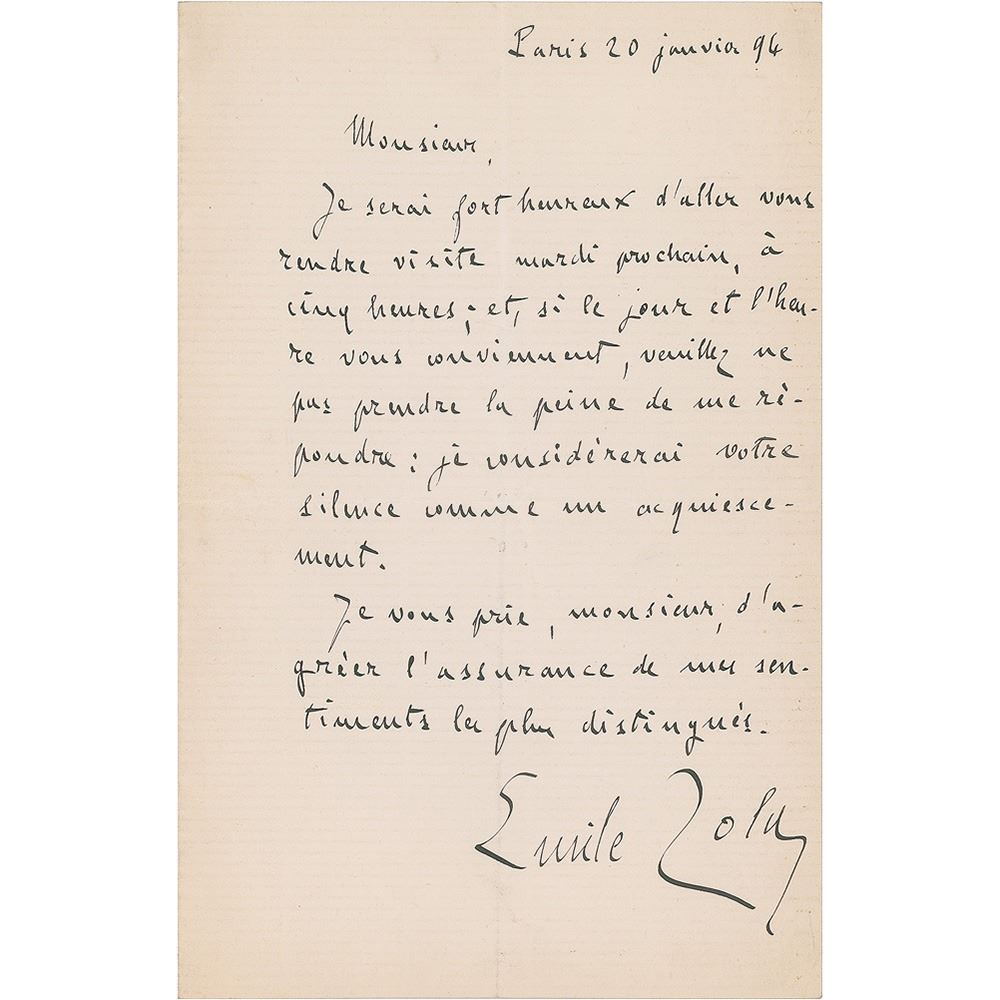 Paris 20 janvier 94
Monsieur,
Je serai fort heureux d'aller vous
rendre visite mardi prochain, à
cinq heures ; et, si le jour et l'heu-
re vous conviennent, veuillez ne
pas prendre la peine de me ré-
pondre : je considérerai votre
silence comme un acquiesce-
ment.
Je vous prie, monsieur, d'a-
gréer l'assurance de mes sen-
timents les plus distingués.
Emile Zola